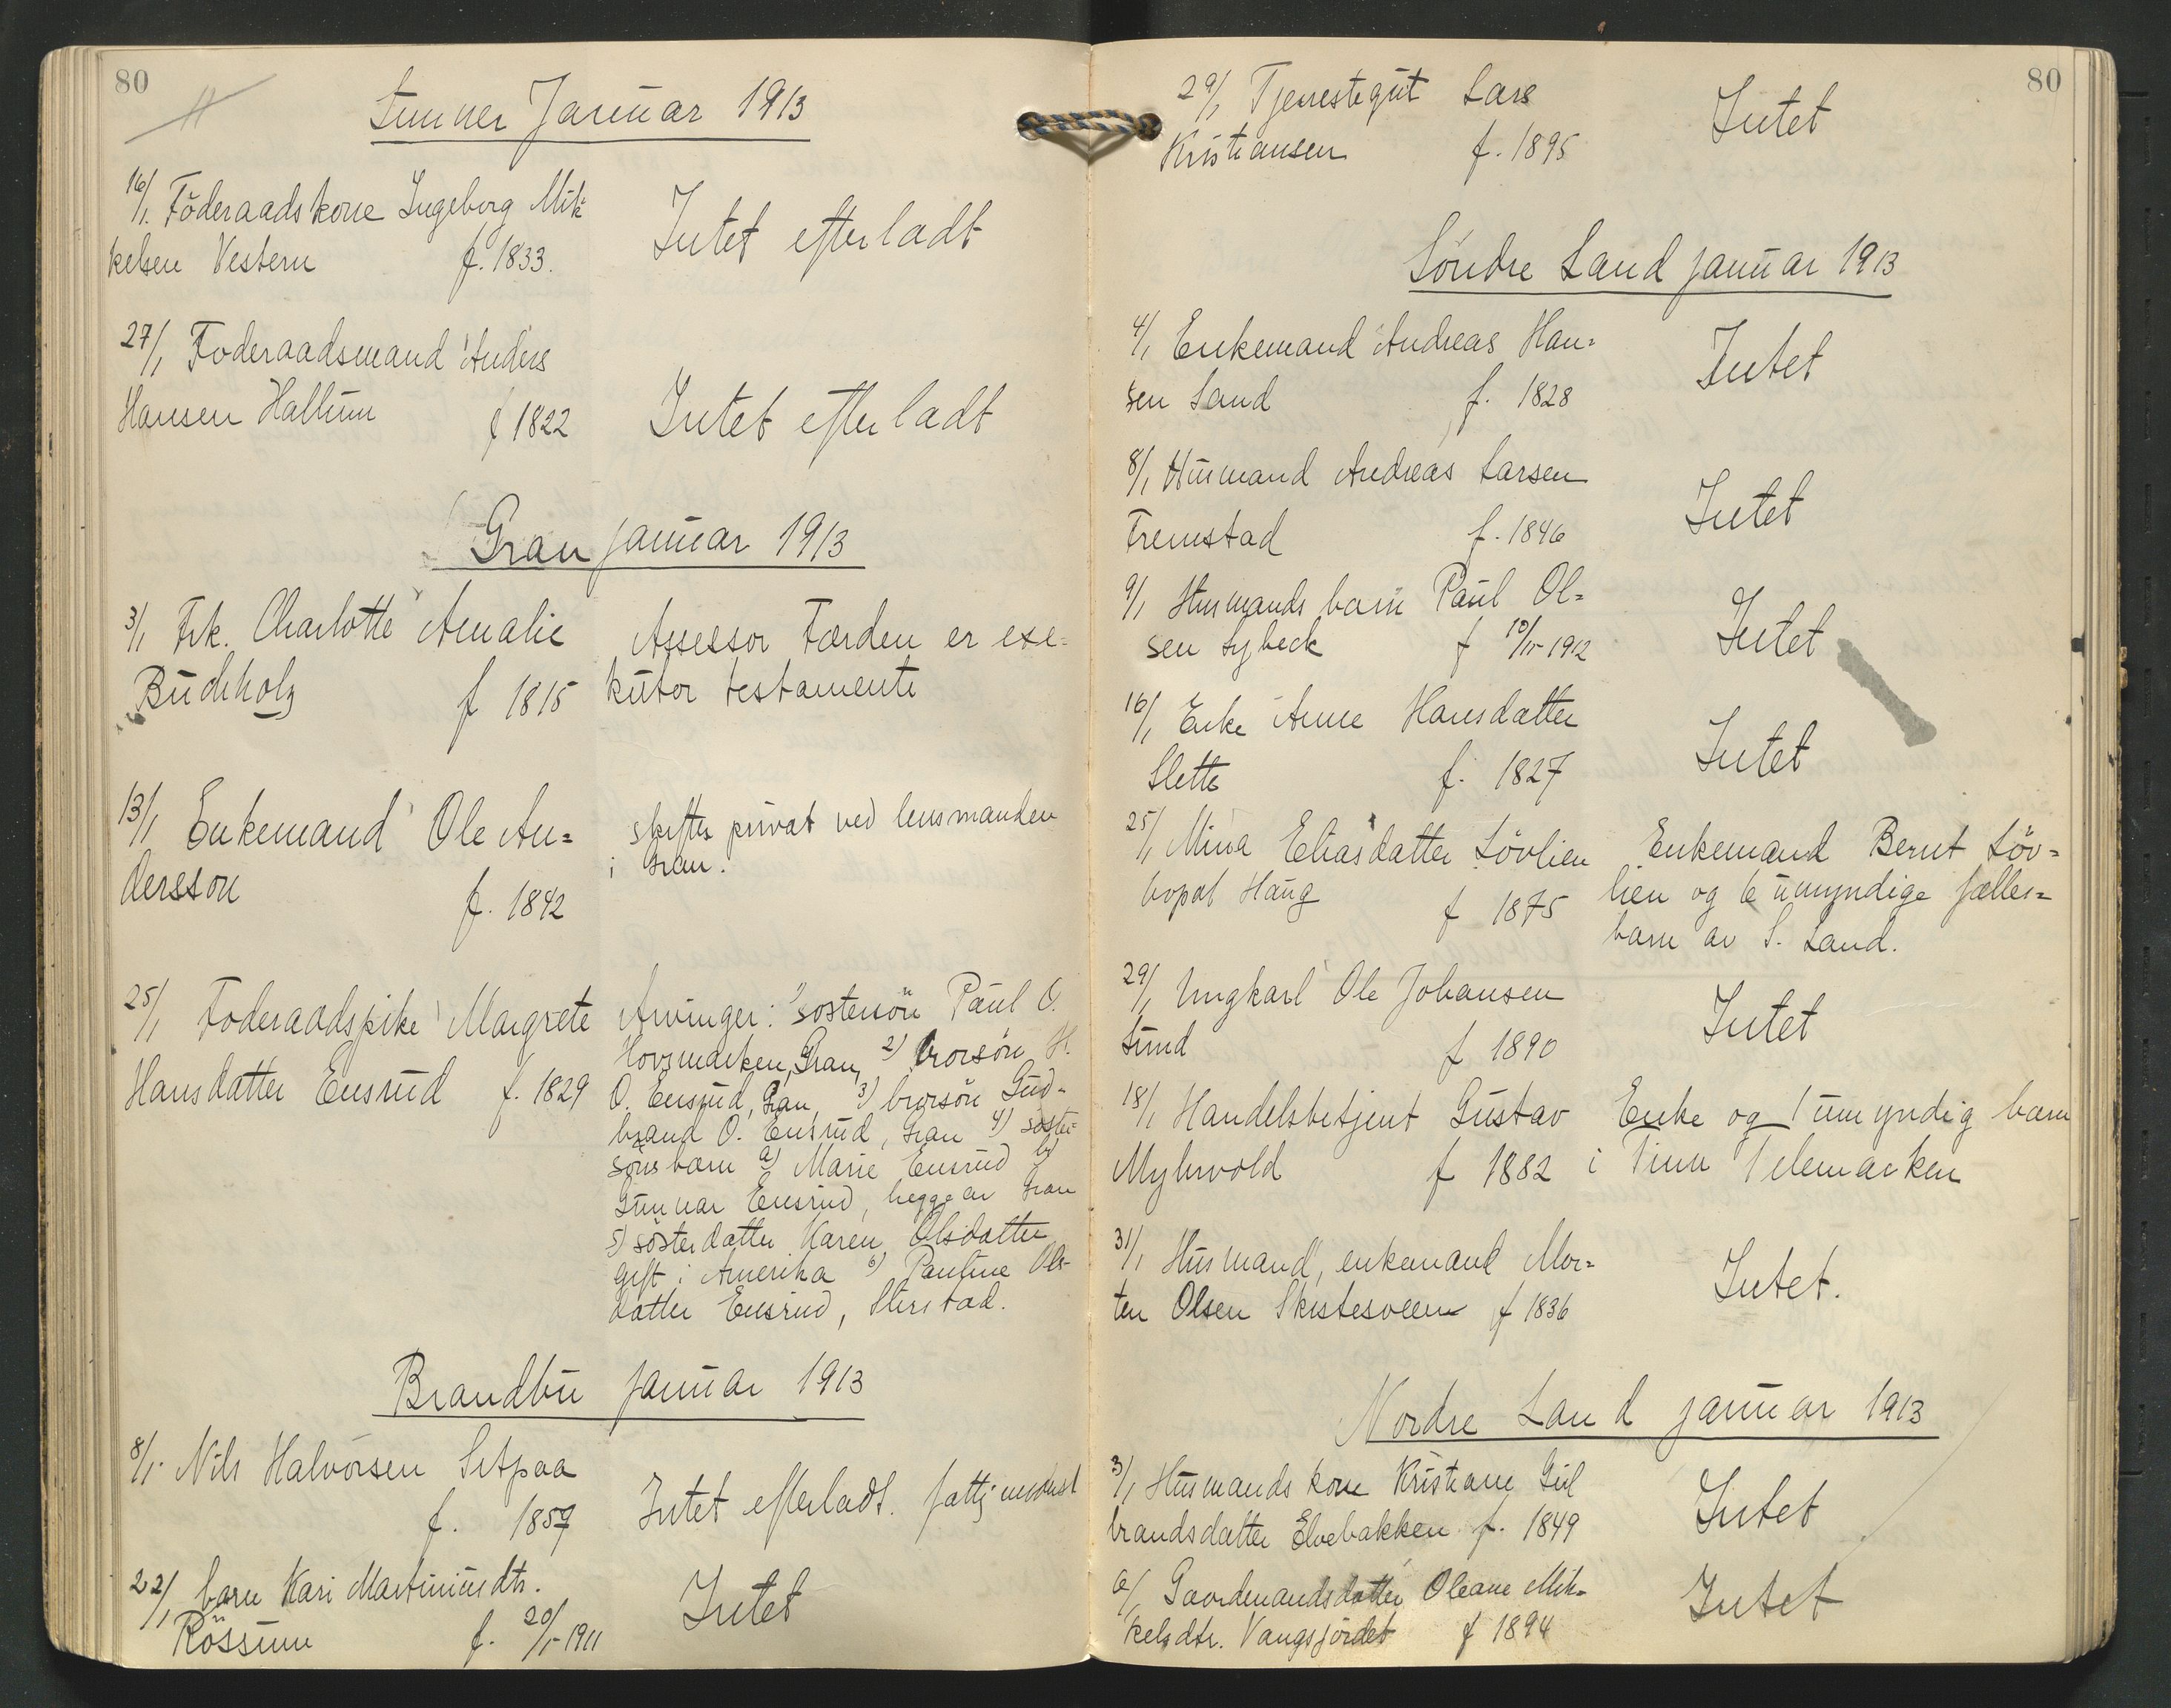 80
Lunner Januar 1913
16/1. Föderaadskone Ingeborg Mik-
kelsen Vestern f. 1833.
Intet efterladt
27/1 Foderaadsmand Anders
Hansen Hallum f 1822
Intet efterladt
Gran januar 1913
3/1 Frk. Charlotte Amalie
Buchholz f 1815
Assessor Færden er exe-
kutor testamente
13/1 Enkemand Ole An=
dersson f. 1842
skiftes privat ved lensmanden
i Gran.
25/1 Foderaadspike Margrete
Hansdatter Ensrud f. 1829
Arvinger: 1) sostersön Paul O.
Hovsmarken, Gran, 2) brorsön H.
O. Ensrud, Gran, 3) brorsön Gud-
brand O. Ensrud, Gran 4) söster
söns barn a) Marie Ensrud b)
Gunnar Ensrud, begge av Gran
5) sösterdatter Karen Olsdatter
gift i Amerika 6) Pauline Ols-
datter Ensrud,
Brandbu januar 1913
8/1. Nils Halvorsen
f. 1857
Intet efterladt.
22/1 barn Kari Martiniusdtr.
Rössum f. 20/5-1911
Intet
80
29/1 Tjenestegut Lars
Kristiansen f. 1895
Intet
Söndre Land januar 1913
4/1 Enkemand Andreas Han=
sen Land f. 1828
Intet
8/1 Husmand Andreas Larsen
Fremstad f. 1846
Intet
9/1 Husmands barn Paul Ol=
sen Lybeck f 10/11-1912
Intet
16/1 Enke Anne Hansdatter
Slette f. 1827
Intet
25/1 Mina Eliasdatter Lövlien
bopæl Haug f 1875
Enkemand Bernt Löv=
lien og 6 umyndige fælles=
barn av S. Land.
29/1 Ungkarl Ole Johansen
Lund f 1890
Intet
18/1 Handelsbetjent Gustav
Myhrvold f 1882
Enke og 1 umyndig barn
i Tinn Telemarken
31/1 Husmand, enkemand Mor=
ten Olsen Skistesveen f 1836
Intet.
Nordre Land januar 1913
3/1 Husmands kone Kristiane Gul
brandsdatter Elvebakken f. 1849
Intet
6/1 Gaardmandsdatter Oleane Mik-
kelsdtr. Vangsjordet f 1894
Intet